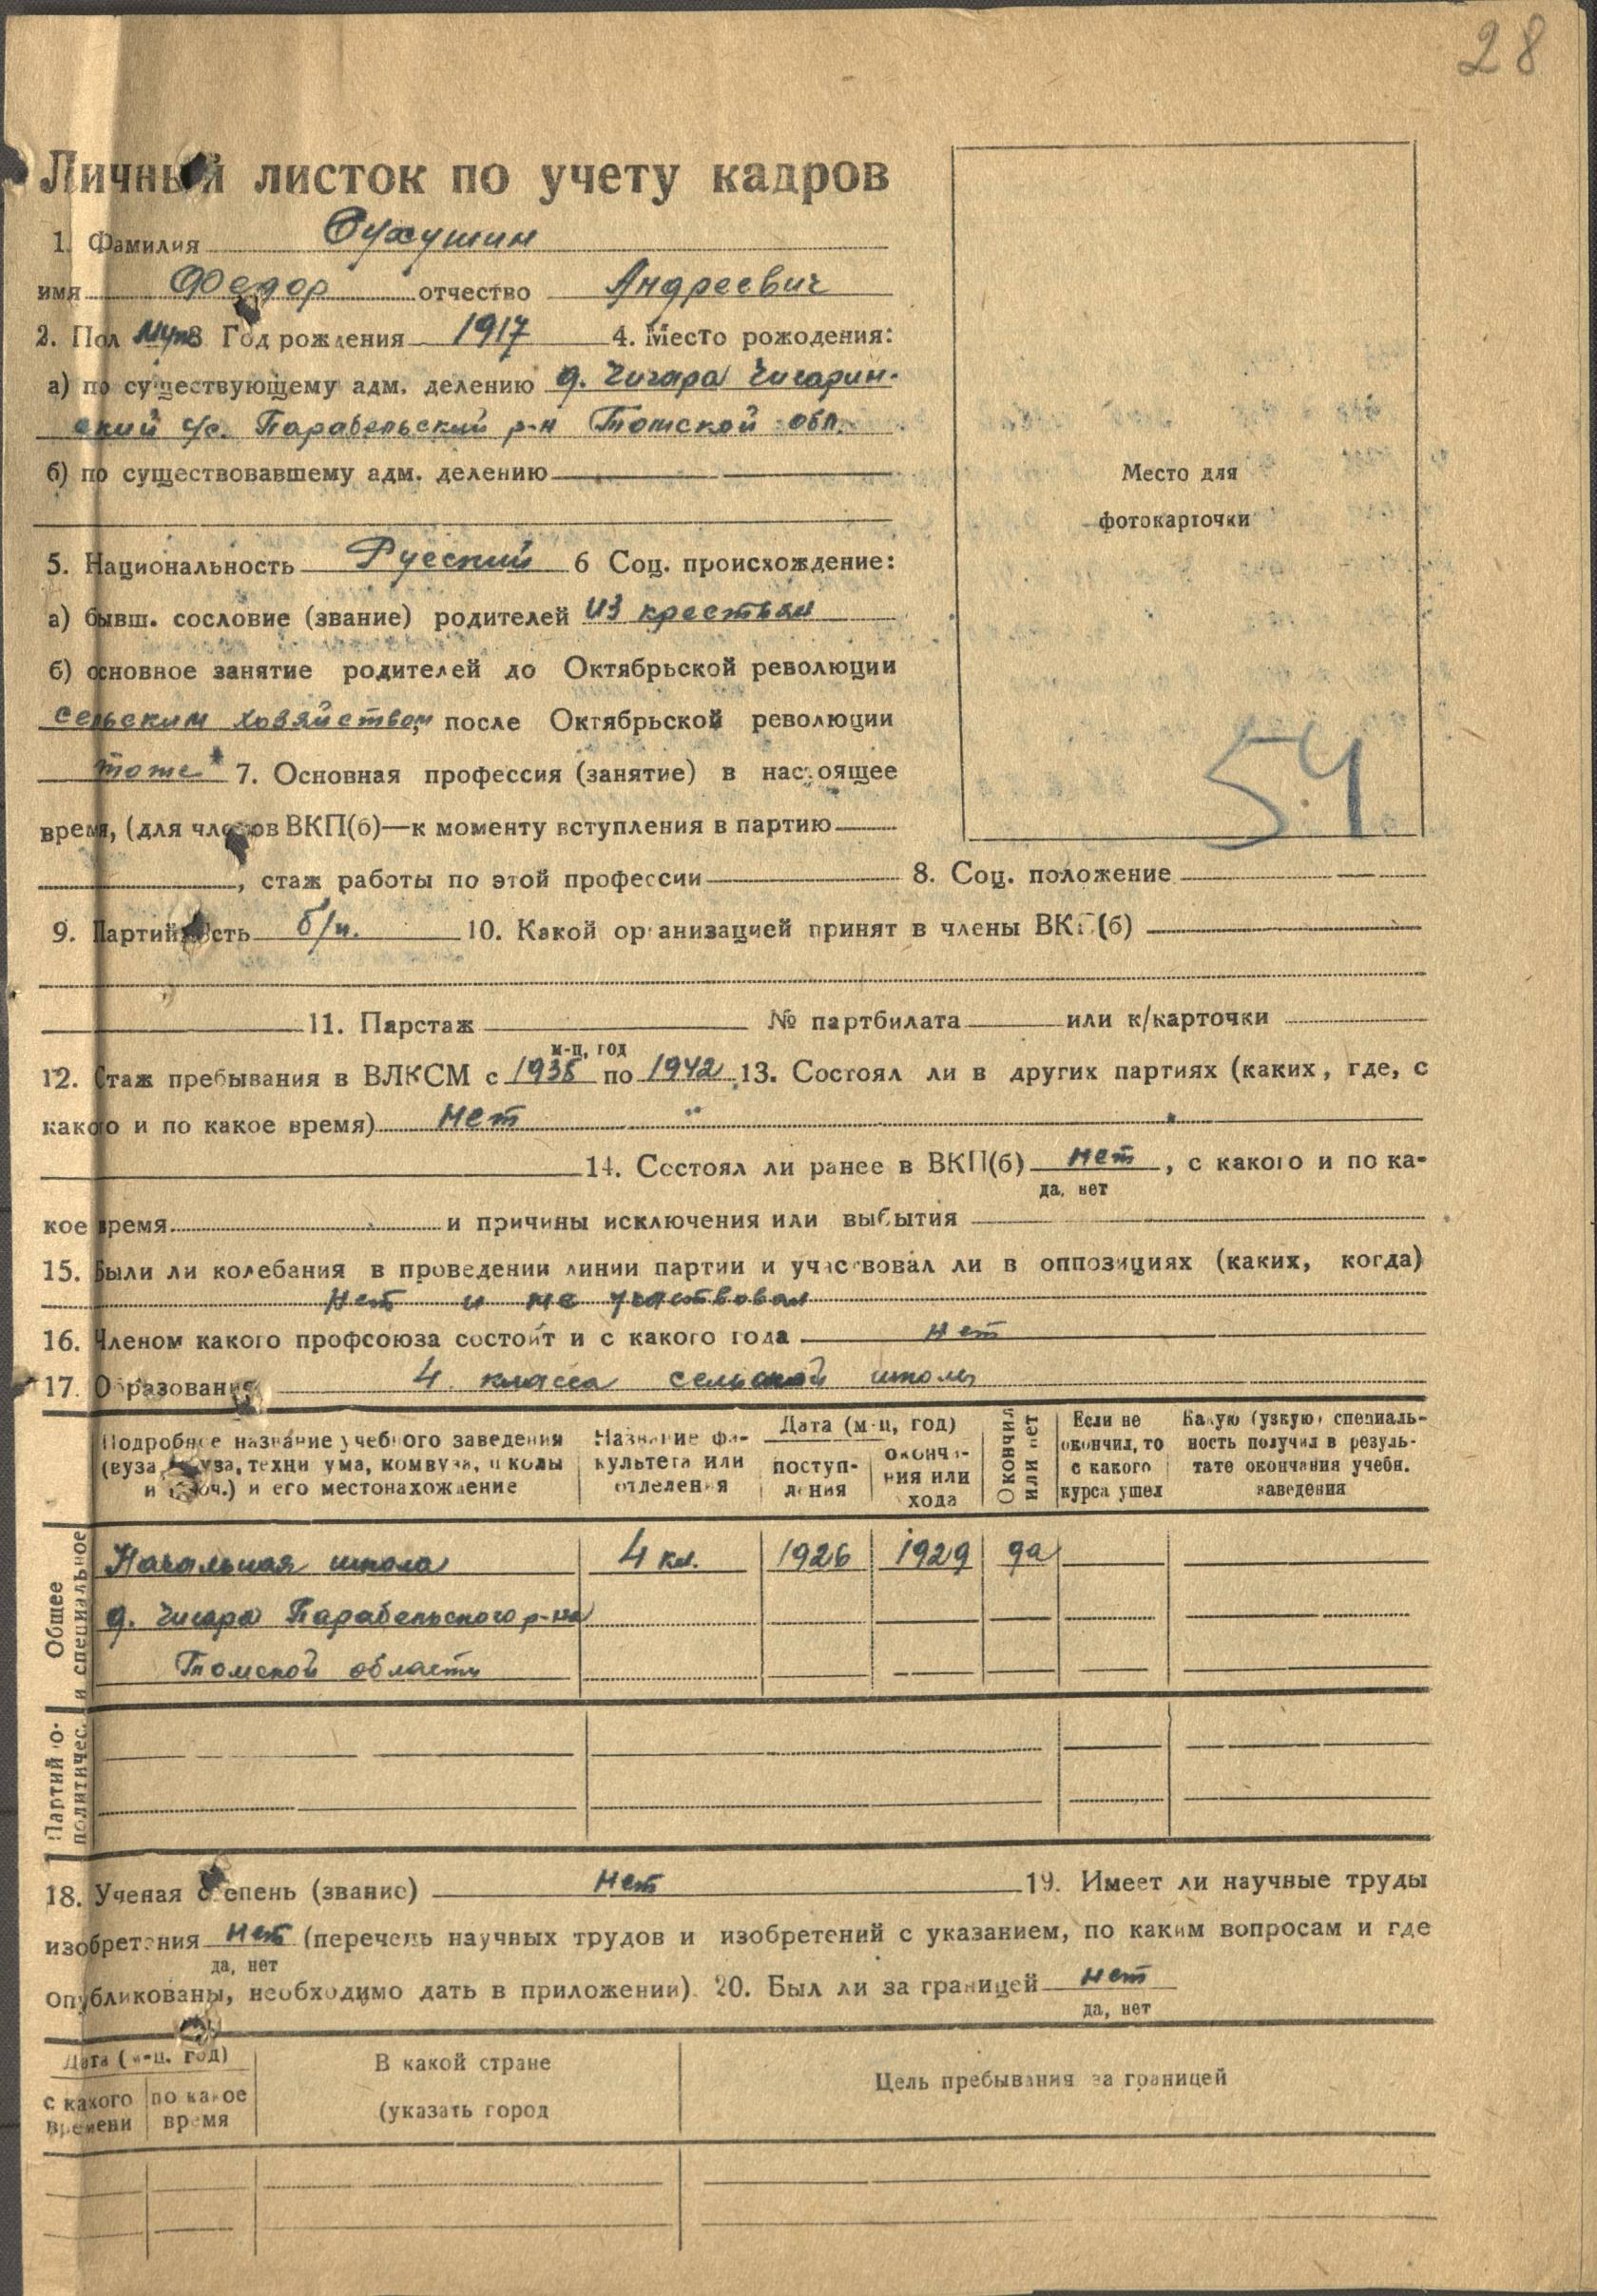 28
Личный листок по учету кадров
1. Фамилия Сухушин
имя Федор отчество Андреевич
2. Пол муж 3 Год рождения 1917 4. Место рожодения:
а) по существующему адм. делению д. Чигара Чигарин-
ский с/с. Парабельский р-н Томской обл.
б) по существовавшему адм. делению
Место для
фотокарточки
5. Национальность Руский 6 Соц. происхождение:
а) бывш. сословие (звание) родителей из крестьян
б) основное занятие родителей до Октябрьской революции
сельским хозяйством, после Октябрьской революции
тоже 7. Основная профессия (занятие) в настоящее
54
время, (для членов ВКП(б)—к моменту вступления в партию
, стаж работы по этой профессии 8. Соц. положение
9. Партийность б/п. 10. Какой организацией принят в члены ВКП(б)
11. Парстаж № партбилата или к/карточки
м-ц, год
12. Стаж пребывания в ВЛКСМ с 1935 по 1942 13. Состоял ли в других партиях (каких, где, с
какого и по какое время) нет
14. Состоял ли ранее в ВКП(б) нет, с какого и по ка-
да, нет
кое время и причины исключения или выбытия
15. Были ли колебания в проведении линии партии и участвовал ли в оппозициях (каких, когда)
нет и не участвовал
16. Членом какого профсоюза состоит и с какого года нет
17. Образование 4 класса сельской школы
Подробное название учебного заведения
(вуза, втуза, техникума, комвуза, школы
и проч.) и его местонахождение
Название фа-
культета или
отделения
Дата (м-ц, год)
поступ-
ления
оконча-
ния или
хода
Окончил
или нет
Если не
окончил, то
с какого
курса ушел
Какую (узкую) специаль-
ность получил в резуль-
тате окончания учебн.
заведения
Общее
и специальное
Начальная школа 4 кл. 1926 1929 да
д. Чигара Парабельского р-на
Томской области
Партийно-
политичес.
18. Ученая степень (звание) нет 19. Имеет ли научные труды
изобретения нет (перечень научных трудов и изобретений с указанием, по каким вопросам и где
да, нет
опубликованы, необходимо дать в приложении) 20. Был ли за границей нет
да, нет
Дата (м-ц. год)
с какого
времени
по какое
время
В какой стране
(указать город
Цель пребывания за границей